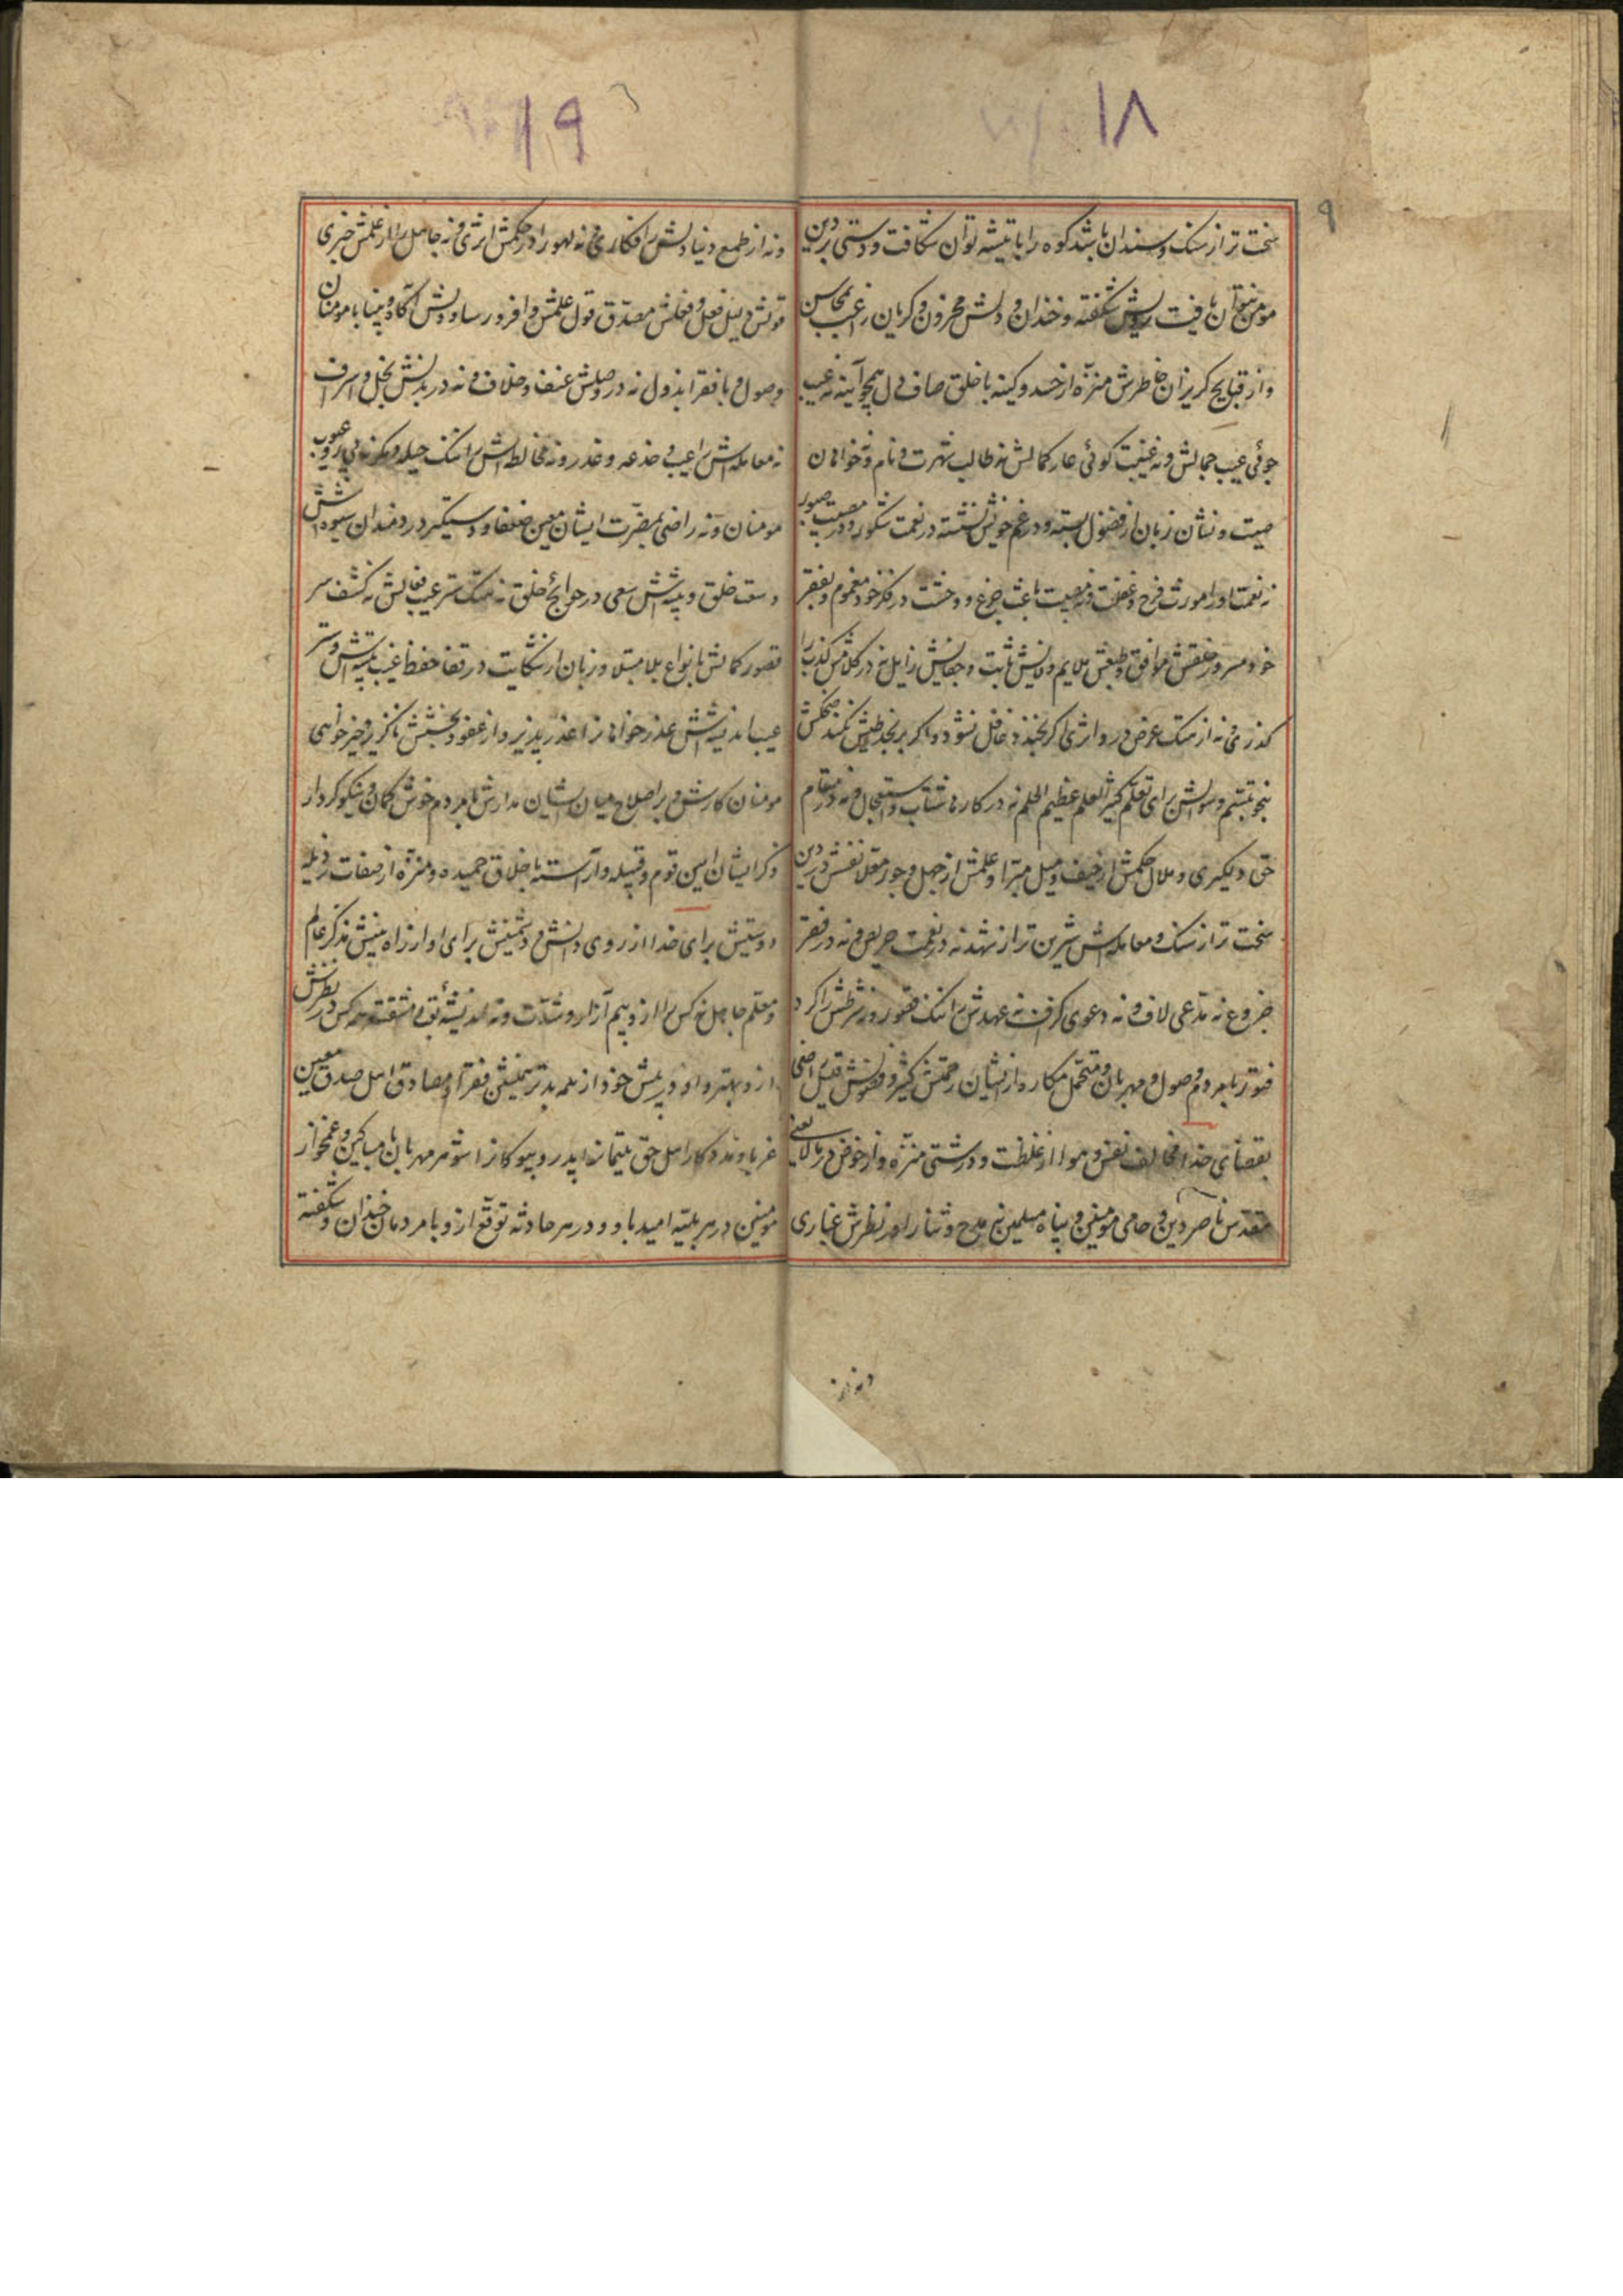 ۱۸
۹
سخت تر از سنک و سندان باشد کوه را با تیشه توان شکافت و دستی بر دین
مومن نتوان یافت رویش شکفته و خندان و دلش محزون و کریان راغب بمحاسن
و از قبایح کریزان خاطرش منزّه از حسد و کینه با خلق صاف دل همچو آینه نه عیب
جوئی عیب جمالش و نه غیبت کوئی عار کمالش نه طالب شهرت و نام و نه خواهان
صیت و نشان زبان از فضول بسته و در غم خویش نشسته در نعمت شکور و در مصیبت صبور
نه نعمت او را مورث فرح و غفلت و نه مصیبت باعث جزع و وحشت در فکر خود مغموم و بفقر
خود مسرور خلقش موافق و طبعش ملایم وفایش ثابت و جفایش زایل نه در کلامش کذب را
کذری و نه از هتک عرض در او اثری اکر بخندد غافل نشود و اکر برنجد طیش نکند ضحکش
تبسم و سوالش برای تعلّم کثیر العلم عظیم الحلم نه در کارها شتاب و استعجال و نه در مقام
حق دلکیری و ملال حکمش از حیف و میل مبرّا و علمش از جهل و جور معرّا نفسش در دین
سخت تر از سنک و معامله اش شیرین تر از شهد نه در نعمت حریص و نه در فقر
جزوع نه مدعی لاف و نه دعوی کزاف نه عهدش را ننک قصور و نه شرطش را کرد
فتور با مردم وصول و مهربان و متحمل مکاره از ایشان رحمتش کثیر و فضولش قلیل راضی
بقضای خدا مخالف نفس و هوا از غلظت و درشتی منزّه و از خوض در ما لا یعنی
مقدس ناصر دین و حامی مومنین و پناه مسلمین نه مدح و ثنا را در نظرش غباری
ونه از
۱۹
و نه از طمع دنیا دلش را فکاری و نه لهو را در حکمش اثری و نه جاهل را از علمش خبری
قولش دلیل فعل و فعلش مصدّق قول علمش وافر و رسا و دلش آکاه و بینا با مومنان
وصول و با فقرا بذول نه در وصلش عنف و خلاف و نه در بذلش بخل و اسراف
نه معامله اش را عیب خدعه و غدر و نه مخالطه اش را ننک حیله و مکر نه پی رو عیوب
مومنان و نه راضی بمضرّت ایشان معین ضعفا و دستکیر دردمندان شیوه اش
وسعت خلق و پیشه اش سعی در حوائج خلق نه هتک ستر عیب فعالش نه کشف سر
قصور کمالش بانواع بلا مبتلا و زبان از شکایت در قفا حفظ غیب پیشه اش و ستر
عیب اندیشه اش عذر خواهانرا عذر پذیر و از عفو و بخشش ناکزیر خیر خواهی
مومنان کارش و بر اصلاح میان ایشان مدارش با مردم خوش کمان و نیکو کردار
ذکر ایشان امین قوم و قبیله و آراسته باخلاق حمیده و منزّه از صفات رذیله
دوستیش برای خدا از روی دانش و دشمنیش برای او از راه بینش مذکّر عالم
و معلم جاهل نه کس را از و بیم آزار و شدّت و نه اندیشهٔ تعب و مشقت همه کس در نظرش
از و بهتر و او در پیش خود از همه بدتر همنشین فقرا و مصادق اهل صدق معین
غربا و مددکار اهل حق یتیمانرا پدر و بیوکانرا شوهر مهربان با مساکین و غمخوار
مومنین در هر بلیّه امید باو و در هر حادثه توقّع ازو با مردمان خندان و شکفته